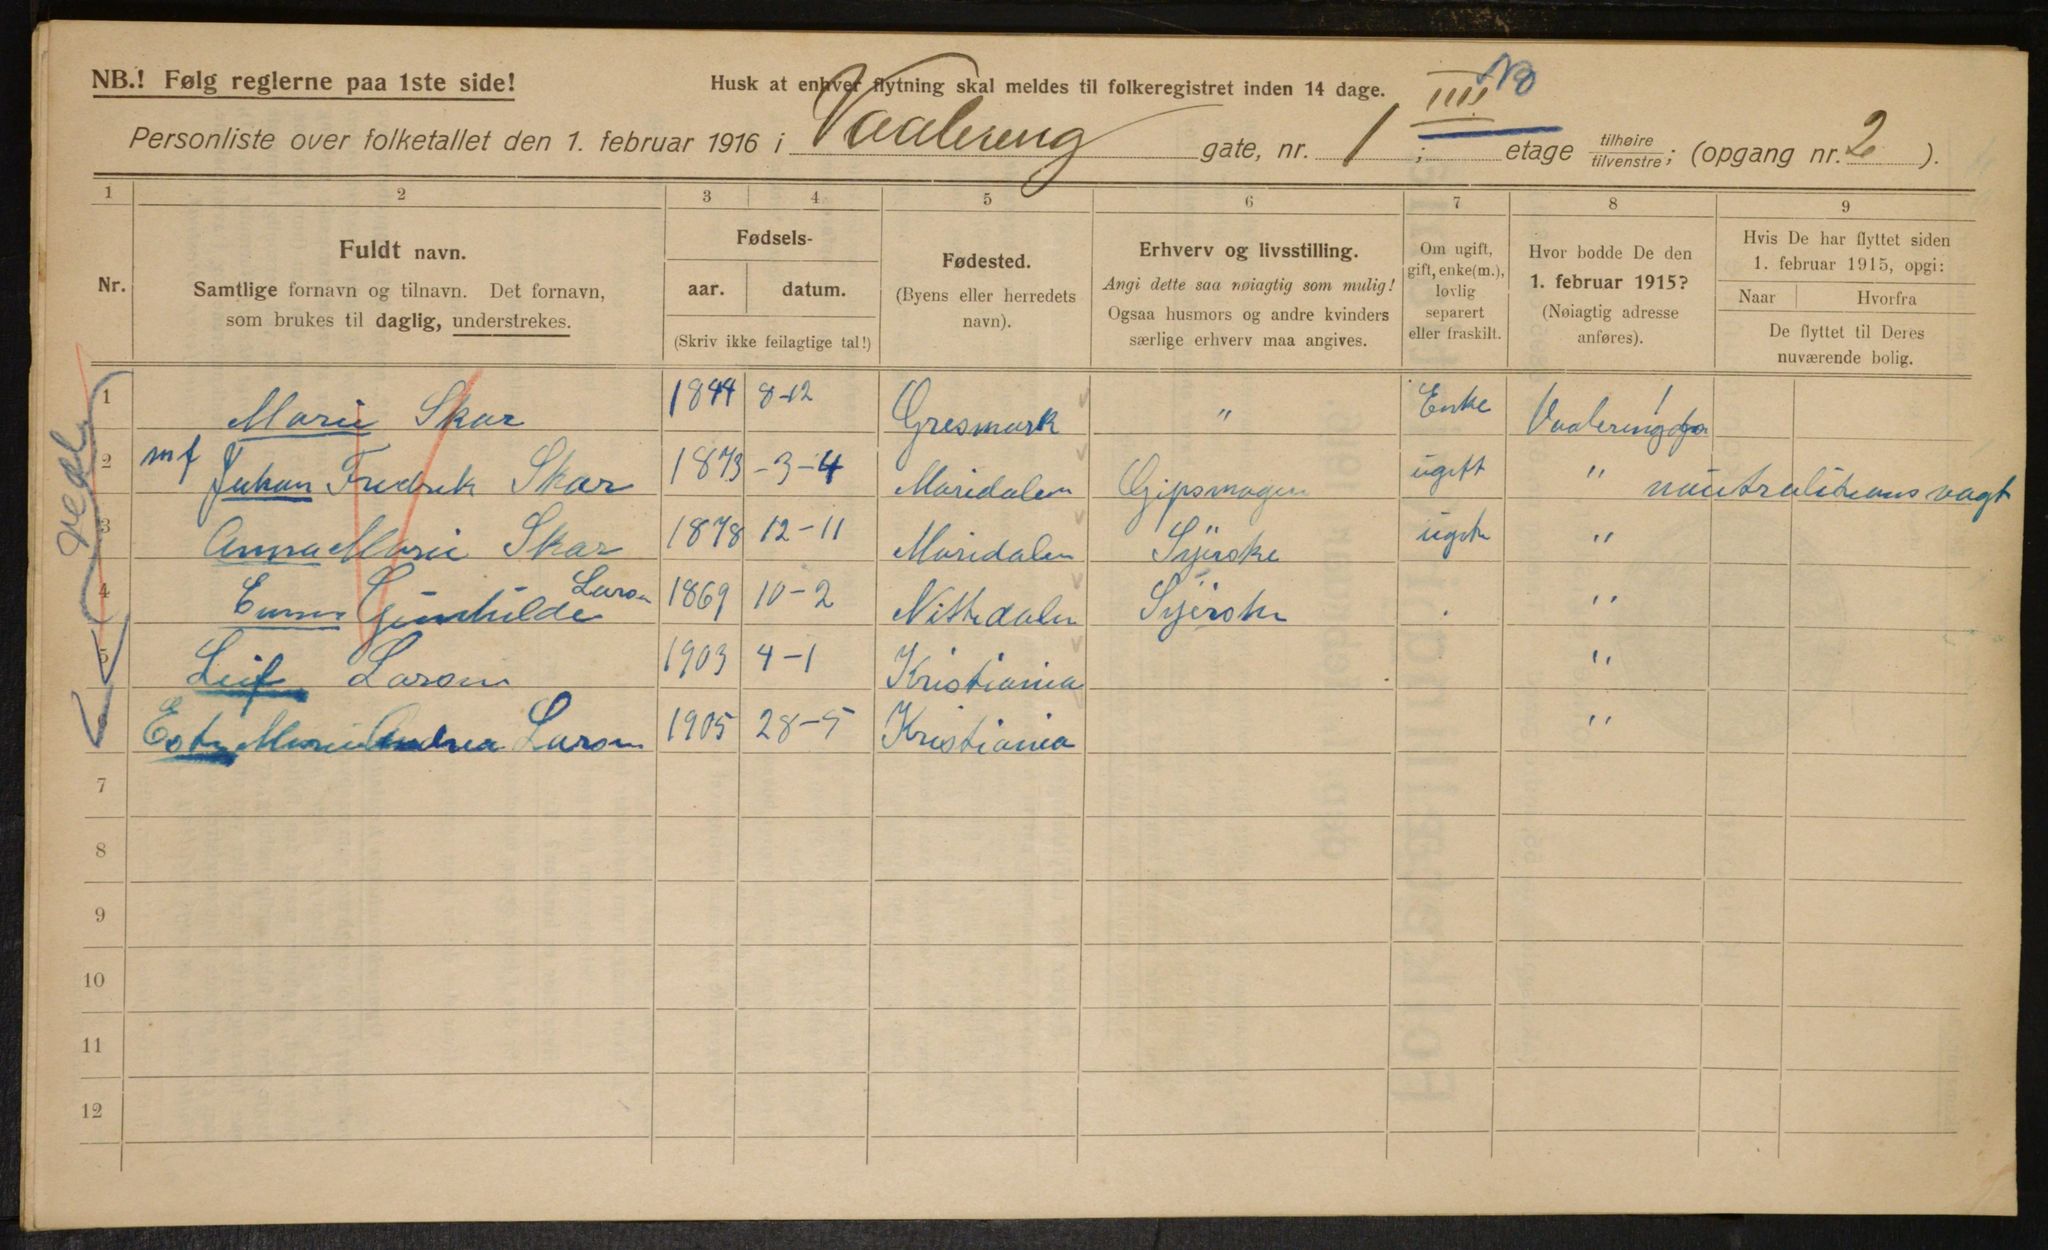 NB.! Følg reglerne paa 1ste side!
Husk at enhver flytning skal meldes til folkeregistret inden 14 dage.
Personliste over folketallet den 1. februar 1916 i Vaalereng gate, nr. 1 ; IIII etage tilhøire/tilvenstre; (opgang nr. 2).
1 2 3 4 5 6 7 8 9
Nr.
Fuldt navn.
Samtlige fornavn og tilnavn. Det fornavn,
som brukes til daglig, understrekes.
Fødsels-
aar. datum.
(Skriv ikke feilagtige tal!)
Fødested.
(Byens eller herredets
navn).
Erhverv og livsstilling.
Angi dette saa nøiagtig som mulig!
Ogsaa husmors og andre kvinders
særlige erhverv maa angives.
Om ugift,
gift, enke(m.),
lovlig
separert
eller fraskilt.
Hvor bodde De den
1. februar 1915?
(Nøiagtig adresse
anføres).
Hvis De har flyttet siden
1. februar 1915, opgi:
Naar Hvorfra
De flyttet til Deres
nuværende bolig.
1 Marie Skar 1844 8-12 Gresmark " Enke Vaalerenggt 1
2 mf Johan Fredrik Skar 1873 -3-4 Maridalen Gipsmager ugift " nøutralitetans vagt
3 Anna Marie Skar 1878 12-11 Maridalen Syerske ugift "
4 Emma Gunhilde Larsen 1869 10-2 Nittedalen Syerske . "
5 Leif Larsen 1903 4-1 Kristiania "
Marie Andrea Larsen 1905 28-5 Kristiania "
7
8
9
10
11
12